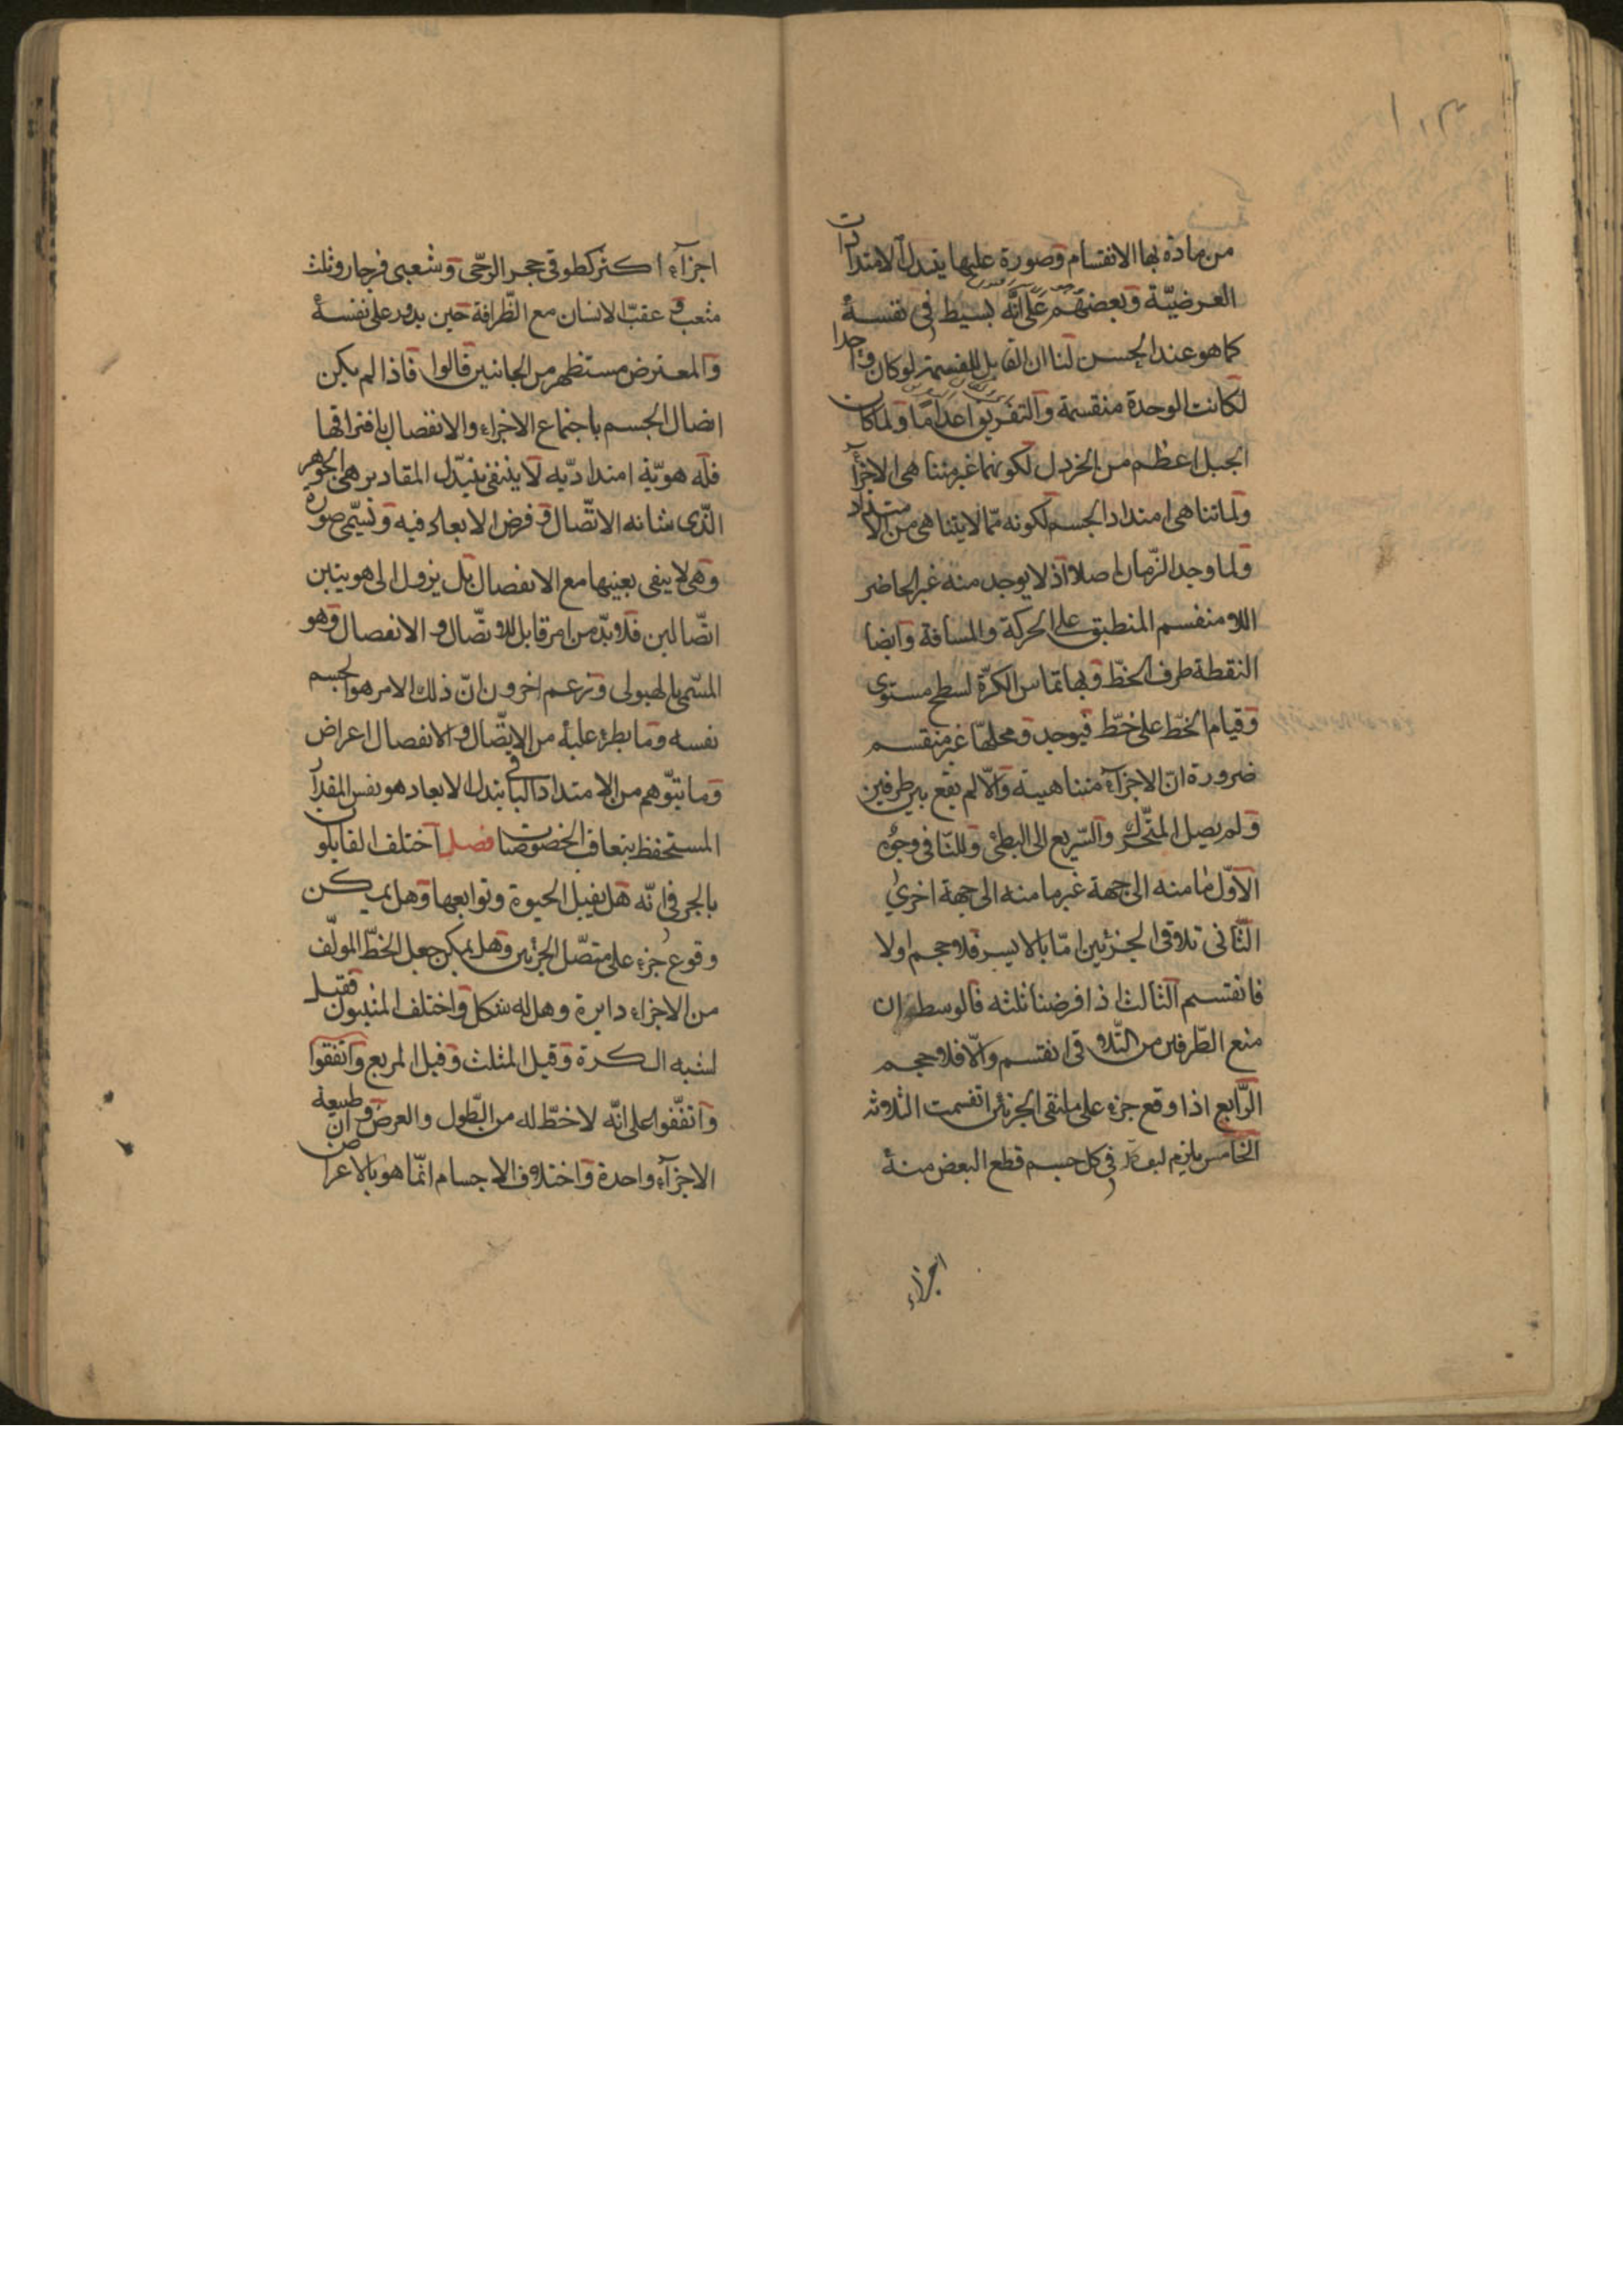 من مادة بها الانقسام وصورة عليها يتبدل الامتدادات
العرضيّة وبعضهم على انّه بسيط في نفسه
كما هو عند الحس لنا ان القابل للقسمة لو كان واحدا
لكانت الوحدة منقسمة والتفريق اعداما ولما كان
الجبل اعظم من الخردل لكونهما غير متناهي الاجزآء
ولما تناهى امتداد الجسم لكونه ممّا لا يتناهى من الامتداد
ولما وجد الزّمان اصلا اذ لا يوجد منه غير الحاضر
اللا منقسم المنطبق على الحركة والمسافة وايضا
النقطة طرف الخطّ وبها تماس الكرّة لسطح مستوى
وقيام الخطّ على خطّ فيوجد ومحلّها غير منقسم
ضرورة انّ الاجزآء متناهية والّا لم يقع بين طرفين
ولم يصل المتحّرك والسّريع الى البطئ وللنّافى وجوه
الاوّل ما منه الى جهة غير ما منه الى جهة اخرى
الثّانى تلاقى الجزئين امّا بالاسر فلا حجم اولا
فانقسم الثالث اذا فرضنا ثلثه فالوسط ان
منع الطّرفين من التّلاقى انقسم والّا فلا حجم
الرّابع اذا وقع جزء على ملتقى الجزئين انقسمت الثلاثة
الخامس يلزم في كل جسم قطع البعض منه
اجزاء
اجزآء اكثر كطوقى حجر الرّحى وشعبى فرجار وثلث
مثعب و عقب الانسان مع الظّرافة حين يدور على نفسه
والمعترض مستظهر من الجانبين قالوا فاذا لم يكن
اتصال الجسم باجتماع الاجزاء والانفصال بافتراقها
فله هويّة امتداديّه لا ينتفى بتبدّل المقادير هى الجوهر
الّذى شانه الاتّصال و فرض الابعاد فيه وتسمّى صورة
وهى لا يبقى بعينها مع الانفصال بل يزول الى هويتين
اتّصالين فلا بدّ من امر قابل للاتّصال و الانفصال وهو
المسّمى بالهيولى وزعم اخرون انّ ذلك الامر هو الجسم
نفسه وما يطرء عليه من الاتّصال والانفصال اعراض
وما يتوّهم من الامتداد الباقى بتبدل الابعاد هو نفس المقدار
المستحفظ بتعاقب الخصوصيات فصل اختلف القايلون
بالجزء في انّه هل يقبل الحيوة وتوابعها وهل يمكن
وقوع جزء على متصّل الجزئين وهل يمكن جعل الخطّ المولّف
من الاجزاء دايرة وهل له شكل واختلف المثبتون فقيل
اشبه الكرة وقيل المثلث وقيل المربع واتفقوا
واتفّقوا على انّه لا خطّ له من الطّول والعرض وان طبيعة
الاجزآء واحدة واختلاف الاجسام انّما هو بالاعراض